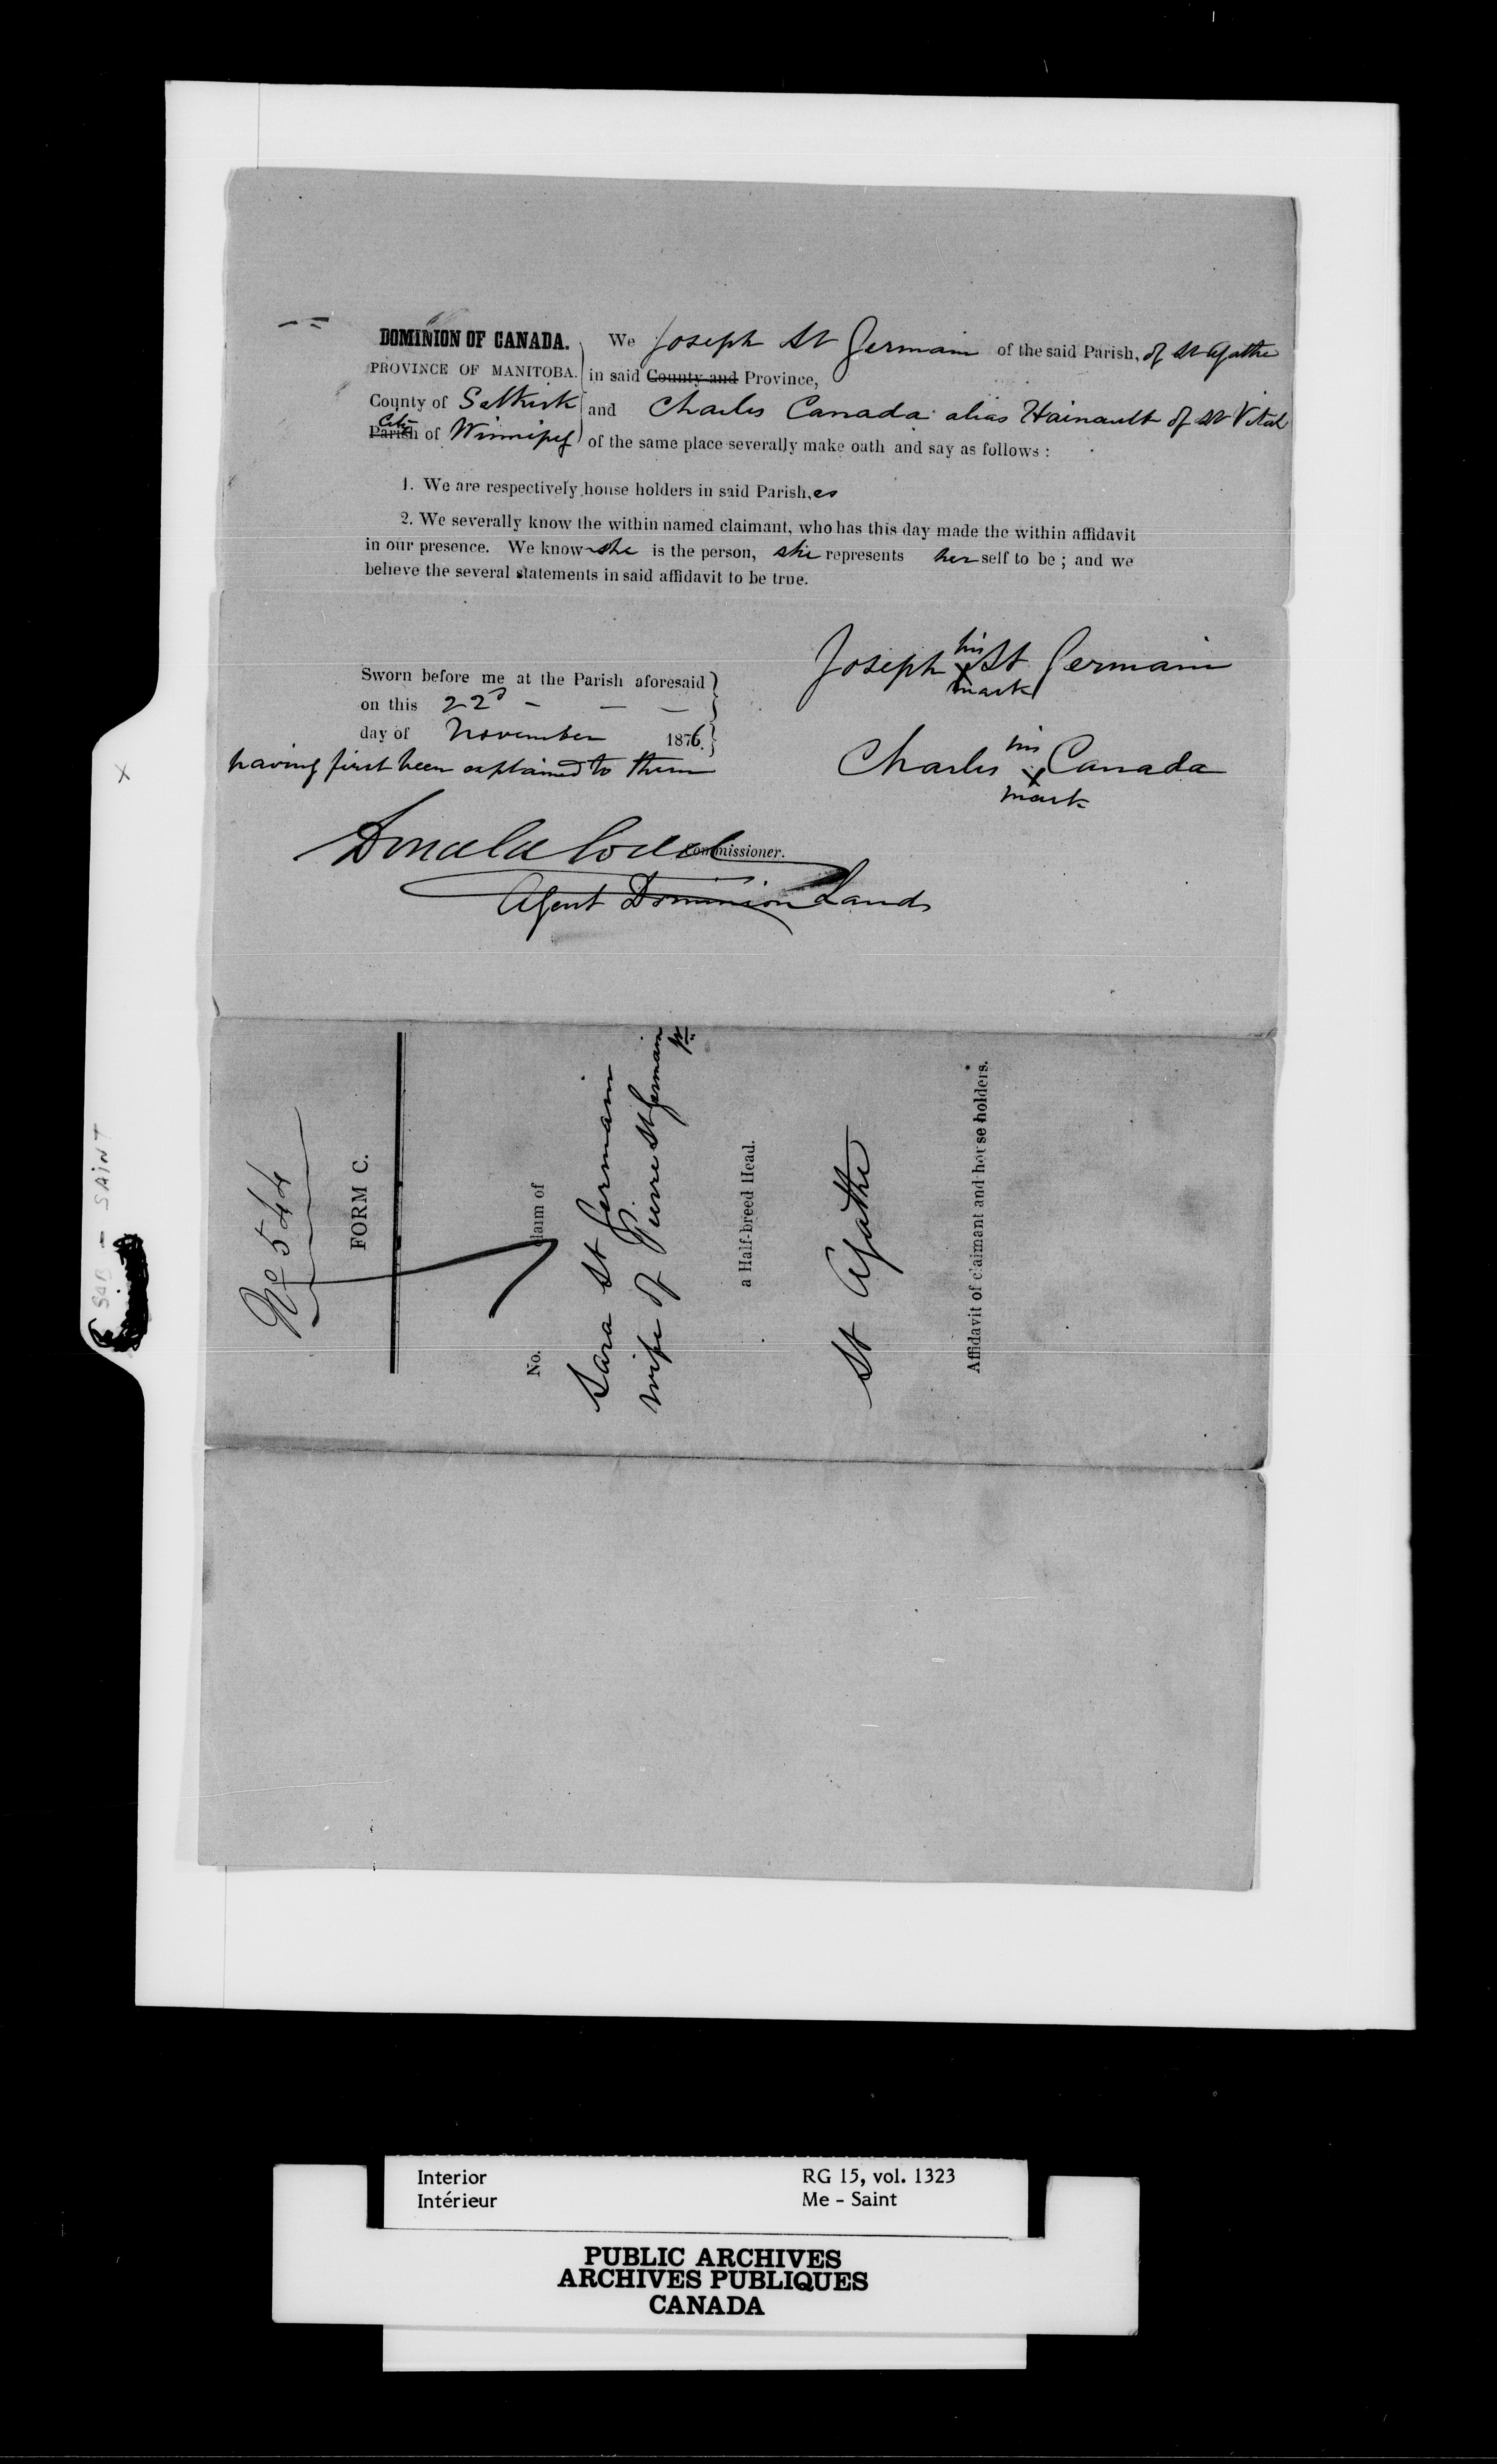 DOMINION OF CANADA. We Joseph St Germain of the said Parish, of St Agathe
PROVINCE OF MANITOBA. in said County and Province,
County of Selkirk and Charles Canada alias Hainault of St Vital
City
Parish of Winnipeg of the same place severally make oath and say as follows :
1. We are respectively house holders in said Parish,es
2. We severally know the within named claimant, who has this day made the within affidavit
in our presence. We know she is the person, she represents her self to be ; and we
believe the several statements in said affidavit to be true.
his
Joseph X St Germain
mark
Sworn before me at the Parish aforesaid
on this 22d
day of November 1876.
having first been explained to them
his
Charles X Canada
mark
Donald Codd
Commissioner.
Agent Dominion Lands
X
SAB - SAINT
No 544
FORM C.
No. Claim of
Sara St Germain
wife of Pierre St Germain
a Half-breed Head.
St Agathe
Affidavit of claimant and house holders.
Interior RG 15, vol. 1323
Intérieur Me - Saint
PUBLIC ARCHIVES
ARCHIVES PUBLIQUES
CANADA